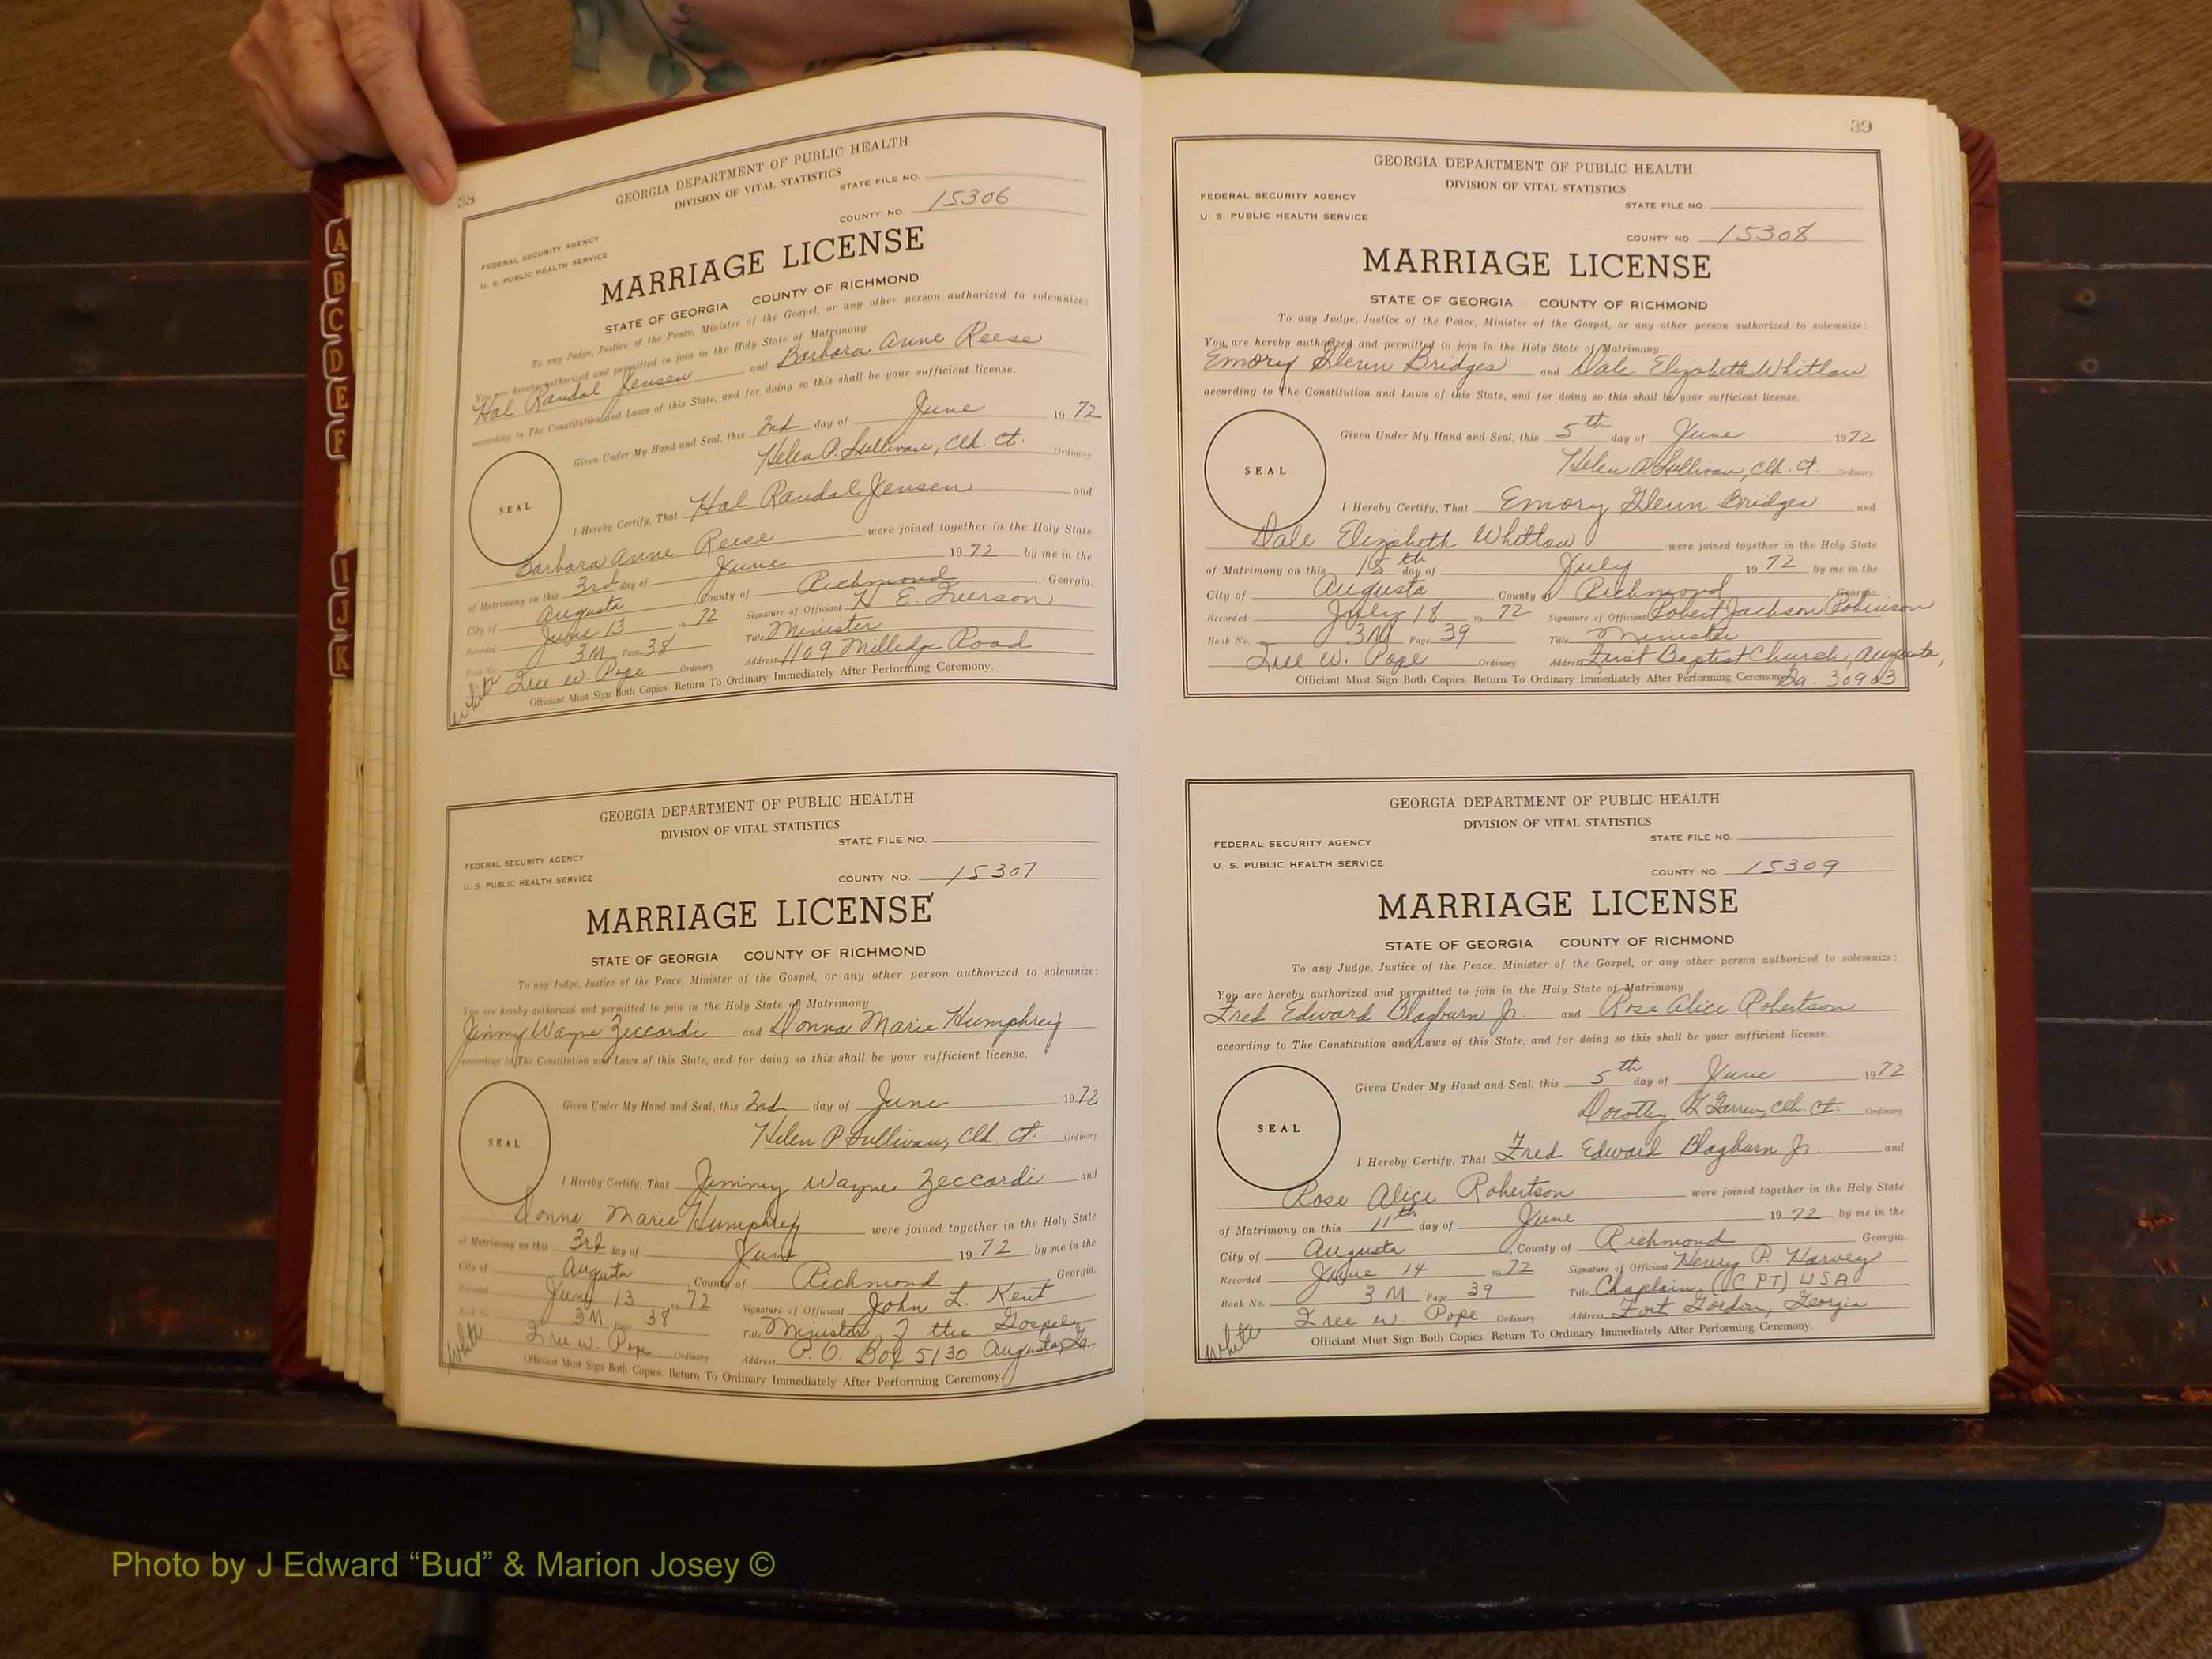 A
B
C
D
E
F
I
J
K
38
GEORGIA DEPARTMENT OF PUBLIC HEALTH
DIVISION OF VITAL STATISTICS
STATE FILE NO.
COUNTY NO. 15306
FEDERAL SECURITY AGENCY
U. S. PUBLIC HEALTH SERVICE
MARRIAGE LICENSE
STATE OF GEORGIA COUNTY OF RICHMOND
To any Judge, Justice of the Peace, Minister of the Gospel, or any other person authorized to solemnize:
You are hereby authorized and permitted to join in the Holy State of Matrimony
Hal Randal Jensen and Barbara Anne Reese
according to The Constitution and Laws of this State, and for doing so this shall be your sufficient license.
Given Under My Hand and Seal, this 2nd day of June 1972
Helen P. Sullivan, Clk. Ct. Ordinary
SEAL
I Hereby Certify, That Hal Randal Jensen and
Barbara Anne Reese were joined together in the Holy State
of Matrimony on this 3rd day of June 1972 by me in the
City of Augusta County of Richmond, Georgia.
Recorded June 13 1972 Signature of Officiant H. E.
Book No. 3M Page 38 Title Minister
white W. Pope Ordinary Address 1109 Milledge Road
Officiant Must Sign Both Copies. Return To Ordinary Immediately After Performing Ceremony.
GEORGIA DEPARTMENT OF PUBLIC HEALTH
DIVISION OF VITAL STATISTICS
STATE FILE NO.
FEDERAL SECURITY AGENCY
U. S. PUBLIC HEALTH SERVICE
COUNTY NO. 15307
MARRIAGE LICENSE
STATE OF GEORGIA COUNTY OF RICHMOND
To any Judge, Justice of the Peace, Minister of the Gospel, or any other person authorized to solemnize:
You are hereby authorized and permitted to join in the Holy State of Matrimony
Jimmy Wayne Zeccardi and Donna Marie Humphrey
according to The Constitution and Laws of this State, and for doing so this shall be your sufficient license.
Given Under My Hand and Seal, this 2nd day of June 1972
Helen P. Sullivan, Clk. Ct. Ordinary
SEAL
I Hereby Certify, That Jimmy Wayne Zeccardi and
Donna Marie Humphrey were joined together in the Holy State
of Matrimony on this 3rd day of June 1972 by me in the
City of Augusta, County of Richmond Georgia.
Recorded June 13 1972 Signature of Officiant John L. Kent
Book No. 3M Page 38 Title Minister of the Gospel
white W. Pope Ordinary Address P. O. Box 5130 Augusta, Ga.
Officiant Must Sign Both Copies. Return To Ordinary Immediately After Performing Ceremony.
39
GEORGIA DEPARTMENT OF PUBLIC HEALTH
DIVISION OF VITAL STATISTICS
FEDERAL SECURITY AGENCY
STATE FILE NO.
U. S. PUBLIC HEALTH SERVICE
COUNTY NO. 15308
MARRIAGE LICENSE
STATE OF GEORGIA COUNTY OF RICHMOND
To any Judge, Justice of the Peace, Minister of the Gospel, or any other person authorized to solemnize:
You are hereby authorized and permitted to join in the Holy State of Matrimony
Emory Glenn Bridges and Dale Elizabeth Whitlow
according to The Constitution and Laws of this State, and for doing so this shall be your sufficient license.
Given Under My Hand and Seal, this 5th day of June 1972
Helen P. Sullivan, Clk. Ct. Ordinary
SEAL
I Hereby Certify, That Emory Glenn Bridges and
Dale Elizabeth Whitlow were joined together in the Holy State
of Matrimony on this 15th day of July 1972 by me in the
City of Augusta, County of Richmond, Georgia.
Recorded July 18 1972 Signature of Officiant Robert Jackson Robinson
Book No. 3M Page 39 Title Minister
W. Pope Ordinary Address First Baptist Church, Augusta,
Officiant Must Sign Both Copies. Return To Ordinary Immediately After Performing Ceremony. Ga. 30903
GEORGIA DEPARTMENT OF PUBLIC HEALTH
DIVISION OF VITAL STATISTICS
STATE FILE NO.
FEDERAL SECURITY AGENCY
U. S. PUBLIC HEALTH SERVICE
COUNTY NO. 15309
MARRIAGE LICENSE
STATE OF GEORGIA COUNTY OF RICHMOND
To any Judge, Justice of the Peace, Minister of the Gospel, or any other person authorized to solemnize:
You are hereby authorized and permitted to join in the Holy State of Matrimony
Fred Edward Blagburn Jr. and Rose Alice Robertson
according to The Constitution and Laws of this State, and for doing so this shall be your sufficient license.
Given Under My Hand and Seal, this 5th day of June 1972
Dorothy Clk. Ct. Ordinary
SEAL
I Hereby Certify, That Fred Edward Blagburn Jr. and
Rose Alice Robertson were joined together in the Holy State
of Matrimony on this 11th day of June 1972 by me in the
City of Augusta, County of Richmond Georgia.
Recorded June 14 1972 Signature of Officiant Henry P. Harvey
Book No. 3M Page 39 Title Chaplain (CPT) USA
white W. Pope Ordinary Address Fort Gordon, Georgia
Officiant Must Sign Both Copies. Return To Ordinary Immediately After Performing Ceremony.
Photo by J Edward “Bud” & Marion Josey ©